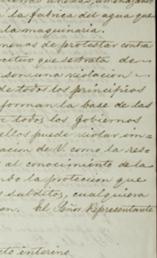 la fabrica del agua que
la maquinaria.
menos de protestar contra
que se trata de
son una violacion
de todos los principios
forman la base de las
todos los Gobiernos
ellos puede violar im
acion de V. como la reso
al conocimiento de la
la proteccion que
subditos, cualquiera
El Señor Representante
interino